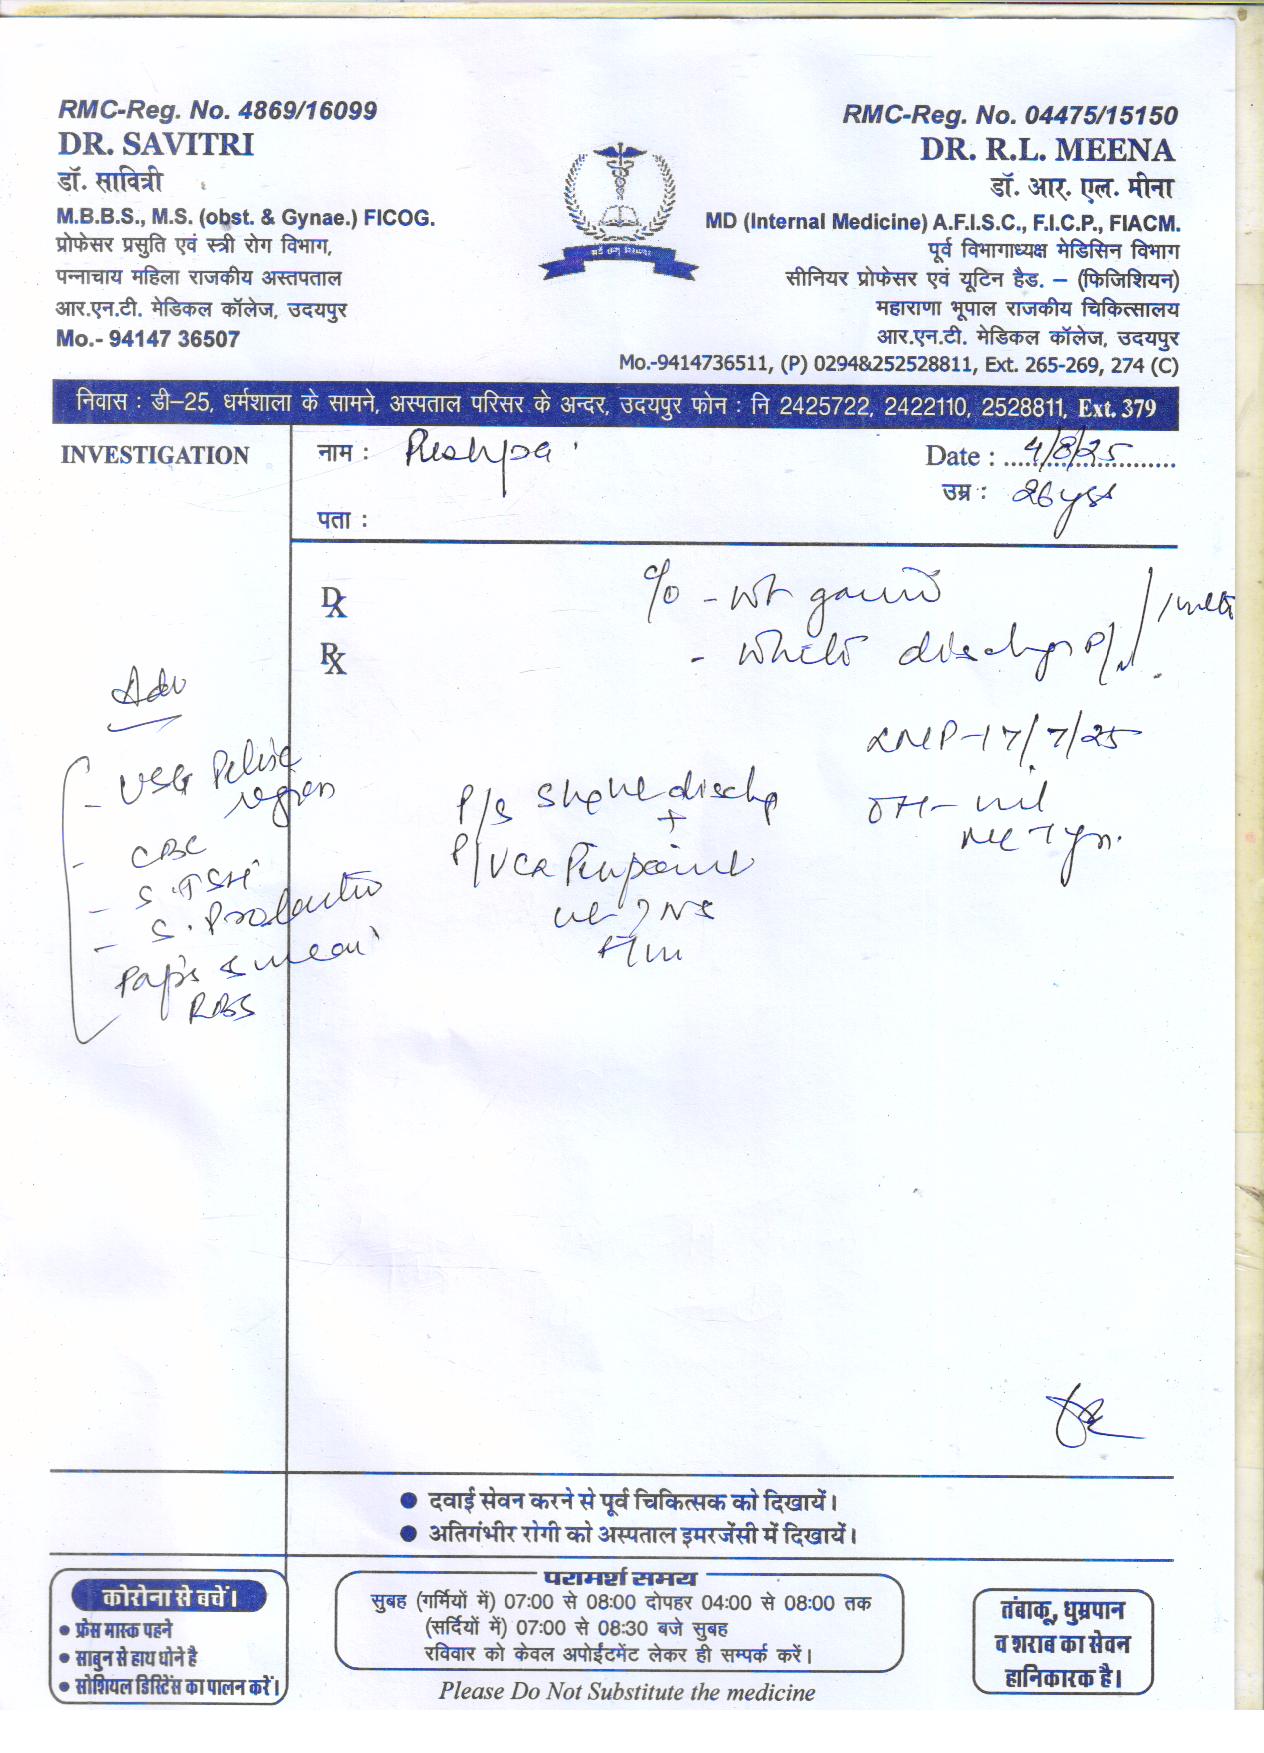 RMC-Reg. No. 4869/16099
DR. SAVITRI
डॉ. सावित्री
M.B.B.S., M.S. (obst. & Gynae.) FICOG.
प्रोफेसर प्रसुति एवं स्त्री रोग विभाग,
पन्नाधाय महिला राजकीय अस्तपताल
आर.एन.टी. मेडिकल कॉलेज, उदयपुर
Mo.- 94147 36507
RMC-Reg. No. 04475/15150
DR. R.L. MEENA
डॉ. आर. एल. मीना
MD (Internal Medicine) A.F.I.S.C., F.I.C.P., FIACM.
पूर्व विभागाध्यक्ष मेडिसिन विभाग
सीनियर प्रोफेसर एवं यूटिन हैड. – (फिजिशियन)
महाराणा भूपाल राजकीय चिकित्सालय
आर.एन.टी. मेडिकल कॉलेज, उदयपुर
Mo.-9414736511, (P) 0294&252528811, Ext. 265-269, 274 (C)
निवास : डी–25, धर्मशाला के सामने, अस्पताल परिसर के अन्दर, उदयपुर फोन : नि 2425722, 2422110, 2528811, Ext. 379
INVESTIGATION
नाम :
Date : 4/8/25
उम्र : 26 yrs
पता :
DX
RX
c/o - wt
- white P/V
LMP-17/7/25
OH- nil
P/S
P/V CX Pinpoint
ut NS
Adv
- USG Pelvic
region
- CBC
- S.TSH
- S. Prolactin
Pap's smear
RBS
● दवाई सेवन करने से पूर्व चिकित्सक को दिखायें।
● अतिगंभीर रोगी को अस्पताल इमरजेंसी में दिखायें।
कोरोना से बचें।
● फ्रेस मास्क पहने
● साबुन से हाथ धोने है
● सोशियल डिस्टिेंस का पालन करें।
परामर्श समय
सुबह (गर्मियों में) 07:00 से 08:00 दोपहर 04:00 से 08:00 तक
(सर्दियों में) 07:00 से 08:30 बजे सुबह
रविवार को केवल अपोईटमेंट लेकर ही सम्पर्क करें।
Please Do Not Substitute the medicine
तंबाकू, धुम्रपान
व शराब का सेवन
हानिकारक है।